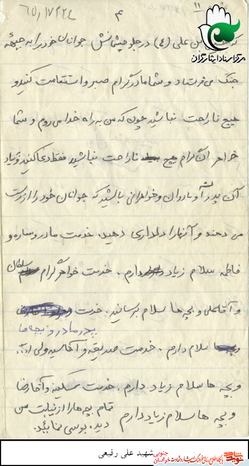 ۴
علی (ع) در جلو چشمانش جوانان خود را به جبهه
جنگ می‌فرستاد و شما مادر گرام صبر و استقامت کنید و
هیچ ناراحت نباشید چون که من به راه خدا می‌روم و شما
خواهران گرام هیچ ناراحت نباشید فقط دعا کنید زیاد
آن پدران و مادران و خواهرانی باشید که جوانان خود را از دست
می دهند و آنها را دلداری دهید. خدمت مادر و ساره و
فاطمه سلام زیاد دارم. خدمت خواهر گرام
و آقا علی و بچه ها سلام برسانید. خدمت
پدر مادر و بچه ها
سلام دارم. خدمت صدیقه و آقا سید ولی الله
و بچه ها سلام زیاد دارم. خدمت سکینه و آقا رضا
و بچه ها سلام زیاد دارم
تمام بچه ها را از نیابت من
دیده بوسی نمائید.
شهید علی رفیعی